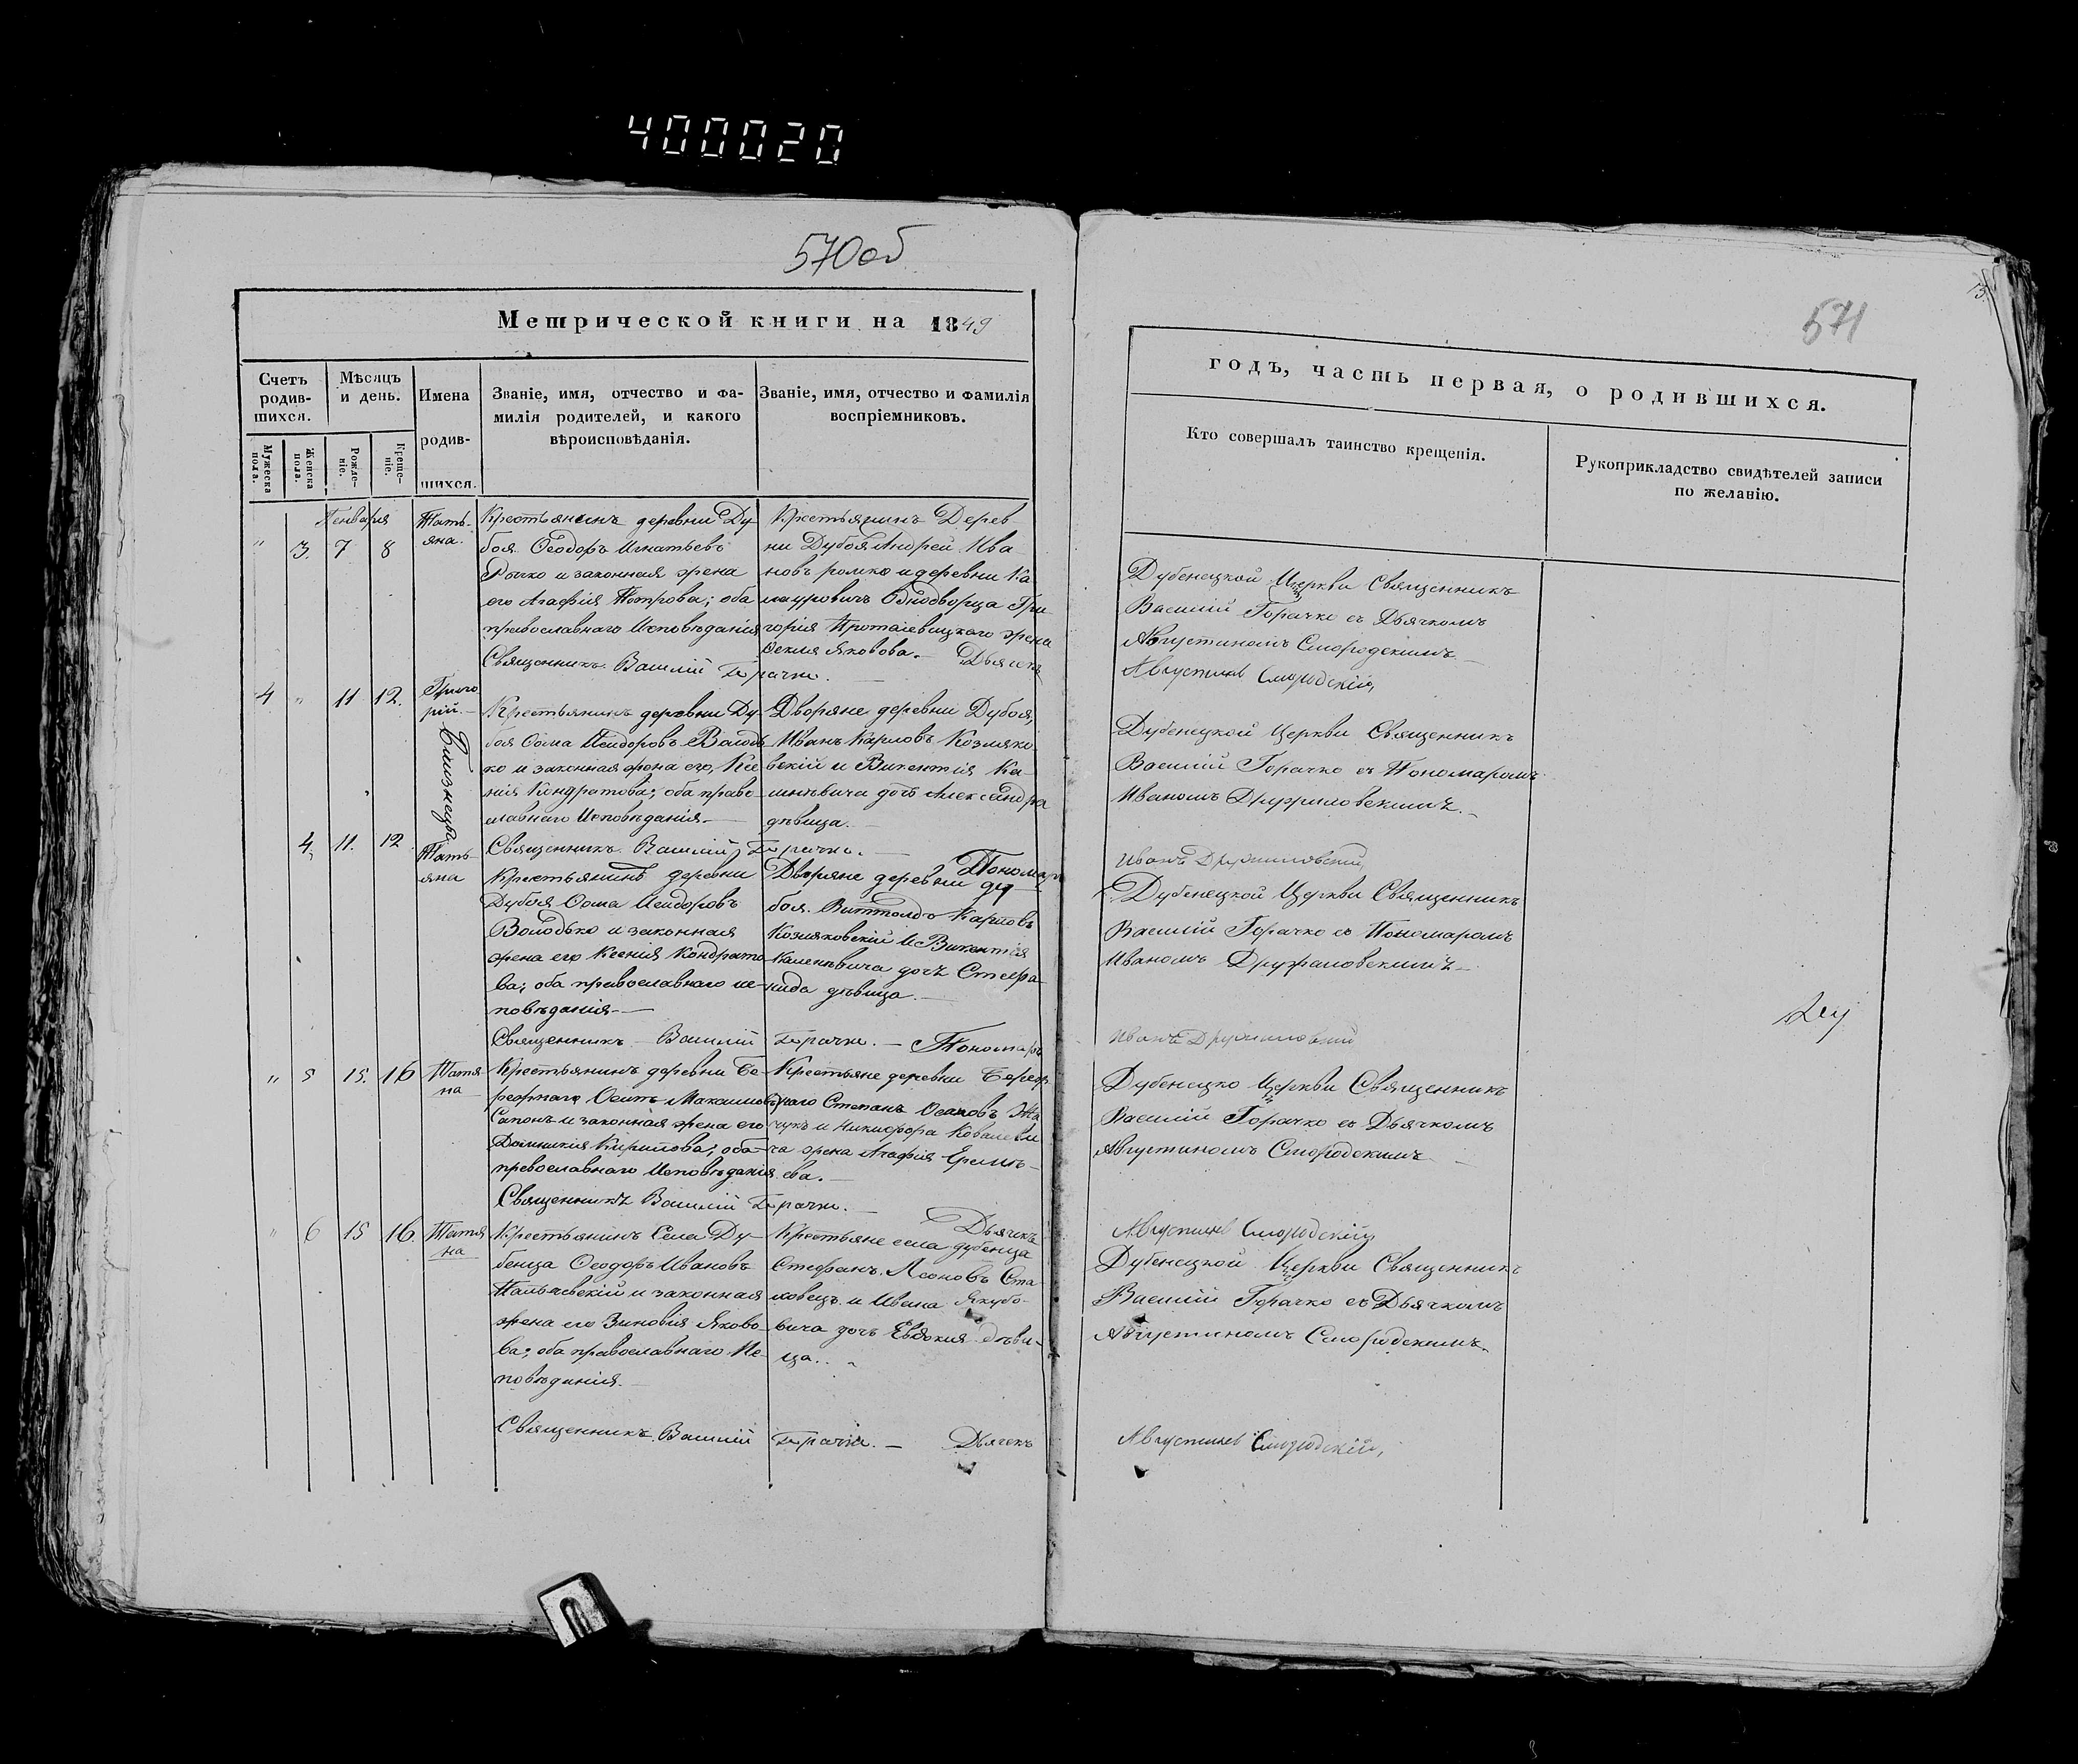 400020
570об
571
Метрической книги на 1849
Счетъ родив-шихся.
Мѣсяцъ и день.
Имена родив-шихся.
Званіе, имя, отчество и фа-
милія родителей, и какого
вѣроисповѣданія.
Званіе, имя, отчество и фамилія
воспріемниковъ.
Мужеска пола.
Женска пола.
Рожде-ніе.
Креще-ніе.
Генваря
" 3 7 8
Тать-
яна.
Крестьянинъ деревни Ду-
боя Ѳеодоръ Игнатьевъ
и законная жена
его Агафія Петрова; оба
православнаго Исповѣданія
Священникъ Василій Горачко.
Крестьянинъ Дерев
ни Дубоя Андрей Ива
новъ ромко и деревни Ка
лауровичъ Однодворца Гри
горія Протасевицкаго жена
Ѳекла Яковова. — Дьячекъ
4 " 11 12.
Григо
рій. —
Близнецы
Крестьянинъ деревни Ду-
боя Ѳома Исидоровъ Володь
ко и законная жена его, Ксе
нія Кондратова; оба право-
славнаго Исповѣданія. —
Дворяне деревни Дубоя,
Иванъ Карловъ Козляко
вскій и Викентія Ка-
линевича дочь Александра
дѣвица. —
4. 11. 12.
Тать-
яна
Священникъ Василій Горачко. —
Пономарь
Крестьянинъ деревни
Дубоя Ѳома Исидоровъ
Володько и законная
жена его Ксенія Кондрато
ва; оба православнаго ис-
повѣданія. —
Священникъ — Василій Горачко. — Пономарь
Дворяне деревни Ду
боя. Витольдъ Карловъ
Козляковскій и Викентія
Калиневича дочь Стефа
нида дѣвица. —
" 5 15. 16
Татя
на
Крестьянинъ деревни Бе-
режнаго Осипъ Максимовъ
Сапонъ и законная жена его
Домникія Кирилова; оба
православнаго Исповѣданія
Священникъ Василій Горачко. —
Крестьяне деревни Береж
наго Степанъ
и Никифора Ковалеви
ча жена Агафія Еремѣ-
ева. —
Дьячекъ
" 6 15 16.
Татя
на
Крестьянинъ Села Ду-
бенца Ѳеодоръ Ивановъ
и законная
жена его Зиновія Яково
ва; оба православнаго Ис-
повѣданія. —
Священникъ Василій Горачко. — Дьячекъ
Крестьяне села Дубенца
Стефанъ Леоновъ Ста
ховецъ и Ивана Якубо-
вича дочь Евдокія дѣви-
ца.
годъ, часть первая, о родившихся.
Кто совершалъ таинство крещенія.
Рукоприкладство свидѣтелей записи
по желанію.
Дубенецкой Церкви Священникъ
Василій Горачко съ Дьячкомъ
Августиномъ Смородскимъ —
Августинъ Смородскій,
Дубенецкой Церкви Священникъ
Василій Горачко съ Пономаромъ
Иваномъ Дружиловскимъ. —
Иванъ Дружиловскій
Дубенецкой Церкви Священникъ
Василій Горачко съ Пономаромъ
Иваномъ Дружиловскимъ —
Иванъ Дружиловскій
Дубенецко Церкви Священникъ
Василій Горачко съ Дьячкомъ
Августиномъ Смородскимъ —
Августинъ Смородскій
Дубенецкой Церкви Священникъ
Василій Горачко съ Дьячкомъ
Августиномъ Смородскимъ.
Августинъ Смородскій,